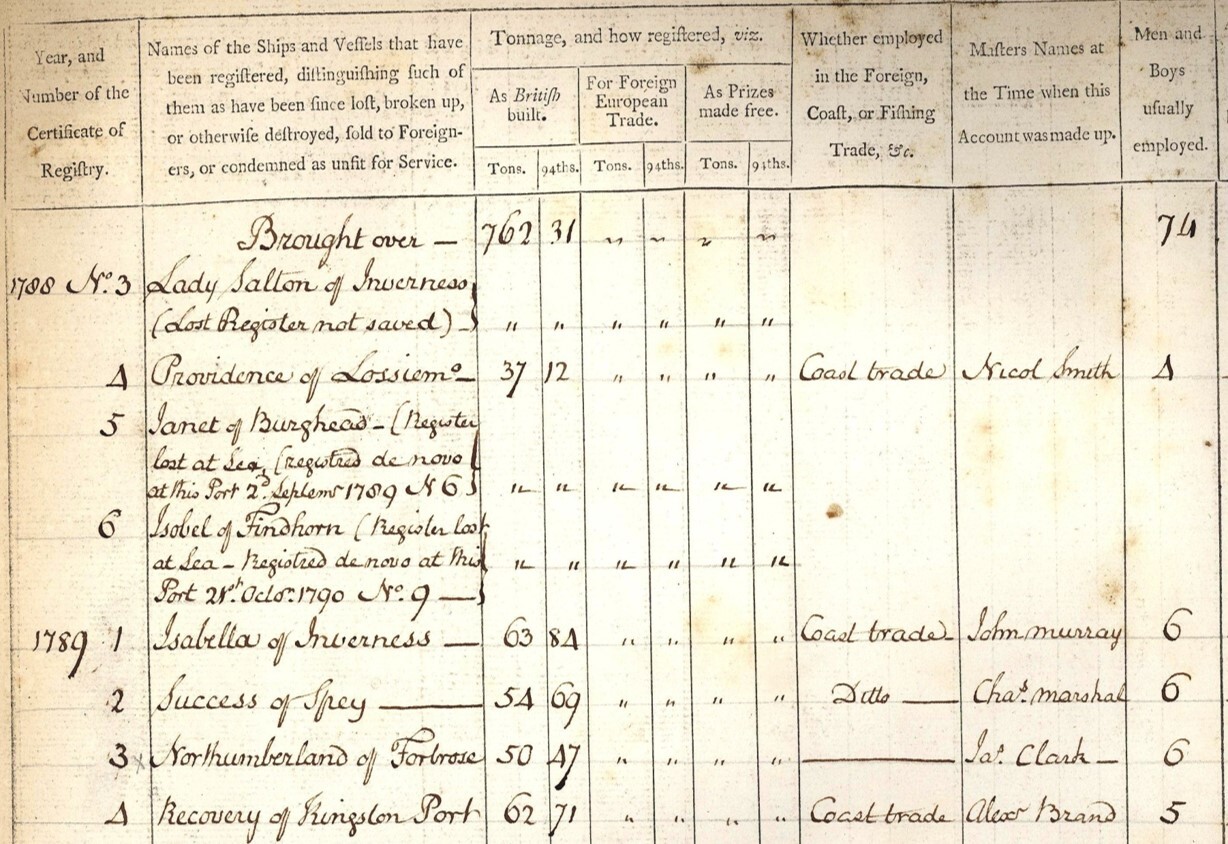 Year, and Number of the Certificate of Registry.
Names of the Ships and Veſſels that have been regiſtered, diſtinguiſhing ſuch of them as have been ſince loſt, broken up, or otherwiſe deſtroyed, ſold to Foreigners, or condemned as unfit for Service.
Tonnage, and how regiſtered, viz.
As Britiſh built.
For Foreign European Trade.
As Prizes made free.
Tons. 94ths. Tons. 94ths. Tons. 94ths.
Whether employed in the Foreign, Coaſt, or Fiſhing Trade, &c.
Maſters Names at the Time when this Account was made up.
Men and Boys uſually employed.
Brought over — 762 31 " " " " 74
1788 No. 3 Lady Salton of Inverness
(Lost Register not saved) — " " " " " "
4 Providence of Lossiemo — 37 12 " " " " Coast trade Nicol Smith 4
5 Janet of Burghead — (Register
lost at Sea, (registred de novo
at this Port 2d. Septemr 1789 N 6) " " " " " "
6 Isobel of Findhorn (Register lost
at Sea — Registred de novo at this " " " " " "
Port 21st. Octor. 1790 No. 9 —)
1789 1 Isabella of Inverness — 63 84 " " " " Coast trade — John murray 6
2 Success of Spey — 54 69 " " " " Ditto — Chas. marshal 6
3 Northumberland of Fortrose 50 47 " " " " — Jas. Clark — 6
4 Recovery of Kingston Port 62 71 " " " " Coast trade Alexr Brand 5